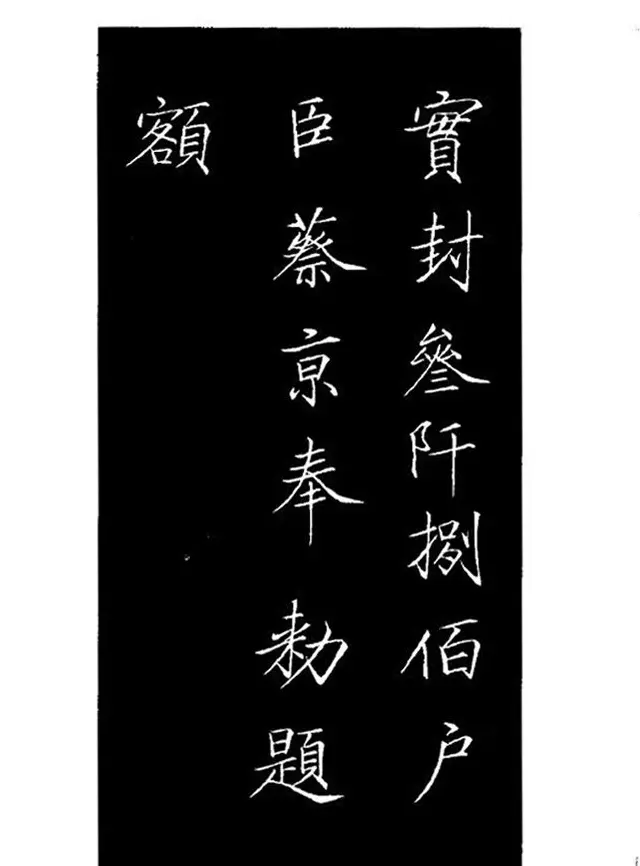 實封叄阡捌佰户
臣蔡京奉敕題
額